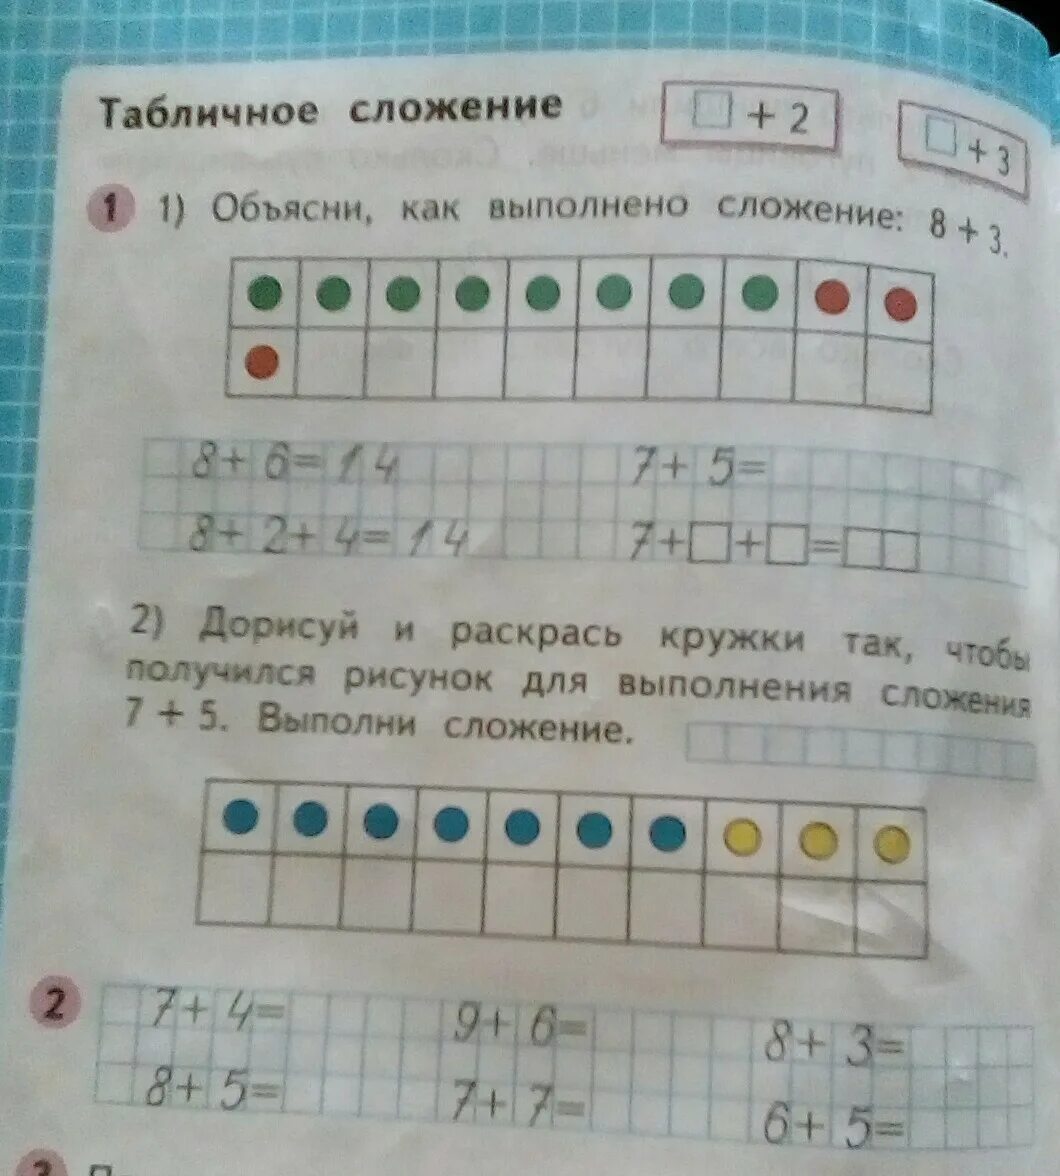 Табличное сложение □ + 2 □ + 3
1 1) Объясни, как выполнено сложение: 8 + 3.
8+6=14 7+5=
8+2+4=14 7+□+□=□□
2) Дорисуй и раскрась кружки так, чтобы
получился рисунок для выполнения сложения
7 + 5. Выполни сложение.
2 7+4= 9+6= 8+3=
8+5= 7+7= 6+5=
3